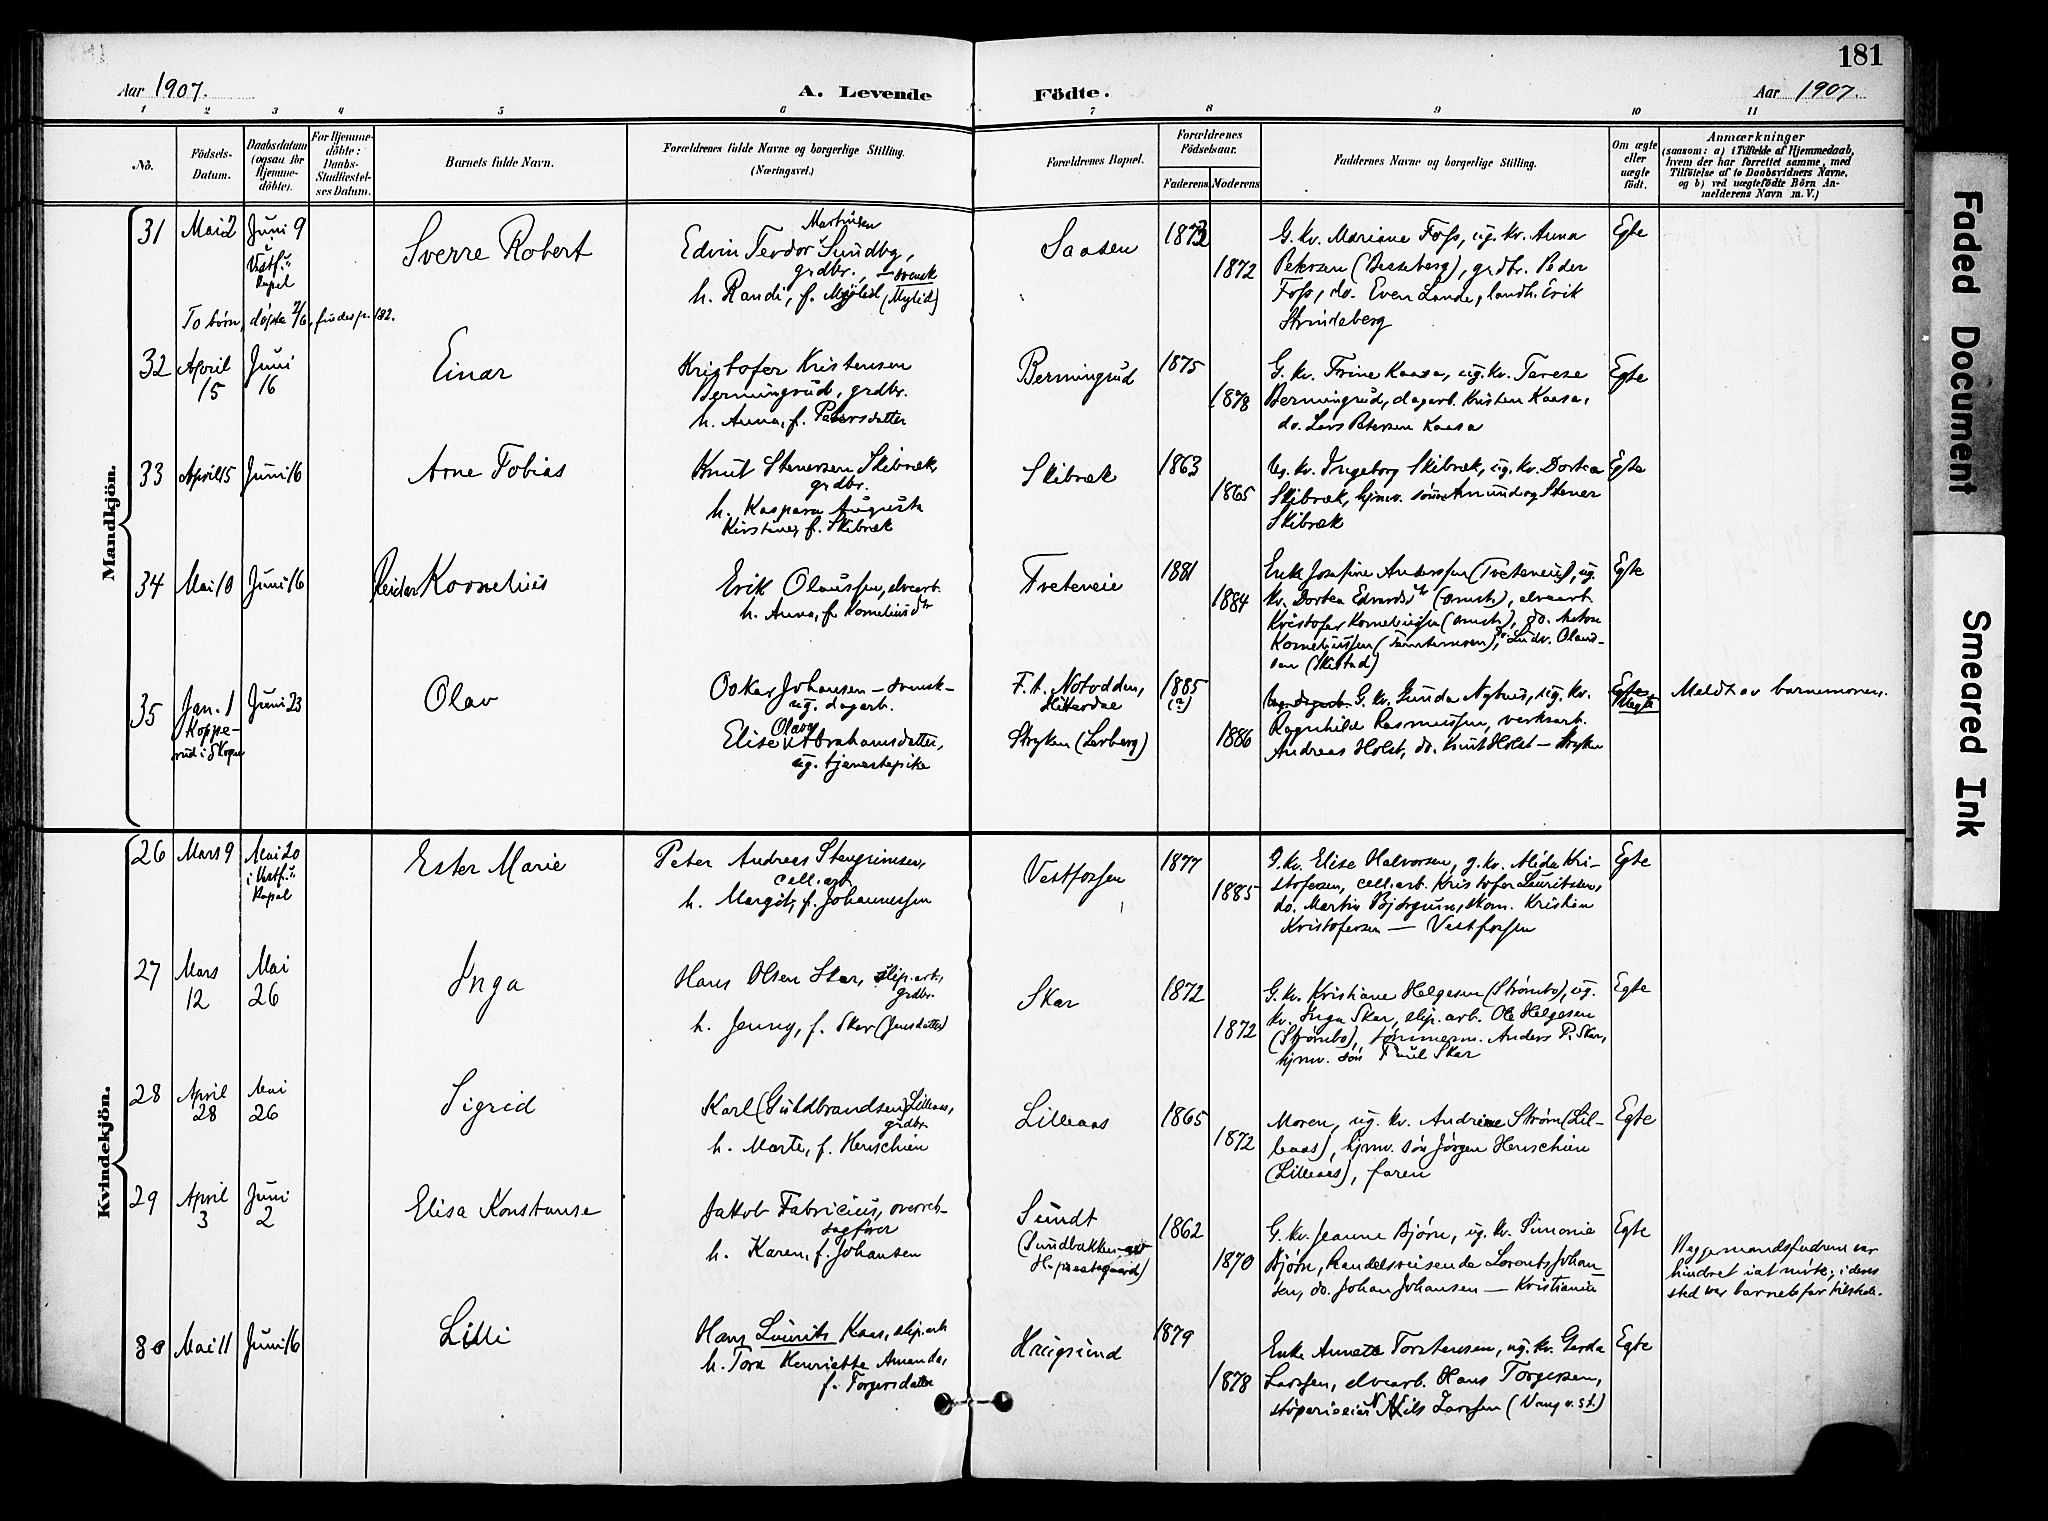 181
Aar 1907.
A. Levende
Födte.
Aar 1907.
1 2 3 4 5 6 7 8 9 10 11
No.
Födsels-
Datum.
Daabsdatum
(ogsaa for
Hjemme-
döbte).
For Hjemme-
döbte:
Daabs-
Stadfæstel-
ses Datum.
Barnets fulde Navn.
Forældrenes fulde Navne og borgerlige Stilling.
(Næringsvei.)
Forældrenes Bopæl.
Forældrenes
Födselsaar.
Faderens.
Moderens.
Faddernes Navne og borgerlige Stilling.
Om ægte
eller
uægte
födt.
Anmærkninger
(saasom: a) i Tilfælde af Hjemmedaab,
hvem der har forrettet samme, med
Tilföielse af to Daabsvidners Navne,
og b) ved uægtefödte Börn An-
melderens Navn m. V.)
Mandkjön.
31
Mai 2
Juni 9
i Vestf.
Kapel
Sverre Robert
Martinsen
Edvin Teodor Sundbg,
grdbr., – svensk
h. Randi, f. Myhlid (Mylid)
Saasen
1873
1872
G. kv. Mariane Foss, ug. kv. Anna
Petersen (Besseberg), grdbr. Peder
Foss, do. Even Lande, landh. Erik
Strindeberg
Egte
To børn, døpte 2/6, findes p. 182.
32
April
15
Juni
16
Einar
Kristofer Kristensen
Bermingrud, grdbr.
h. Anna, f. Petersdatter
Bermingrud
1875
1878
G. kv. Trine Kaasa, ug. kv. Terese
Bermingrud, dagarb. Kristen Kaasa,
do. Lars Petersen Kaasa
Egte
33
April 15
Juni 16
Arne Tobias
Knut Stenersen Skibræk,
grdbr.
h. Kaspara Augusta
Kirstine, f. Skibræk
Skibræk
1863
1865
Ug. kv. Ingeborg Skibræk, ug. kv. Dortea
Skibræk, hjmv. sønn. Amund og Stener
Skibræk
Egte
34
Mai 10
Juni 16
Reidar Kornelius
Erik Olaussen, elvearb.
h. Anna, f. Korneliusdtr
Treteneie
1881
1884
Enke Josefine Anderssen (Treteneie), ug.
kv. Dortea Edvardsdtr (Omst.), elvearb.
Kristofer Korneliussen (Omst.), do. Anton
Korneliussen, do. Ludv. Olaus-
sen (Skistad)
Egte
35
Jan. 1
Koppe-
rud i Skoger
Juni 23
Olav
Oskar Johansen – svensk –
ug. dagarb.
Olava
Elise Abrahamsdatter,
ug. tjenestepike
F. t. Notodden,
Hitterdal
Stryken (Lerberg)
1885
(?)
1886
G. kv. Gunda Nyhus, ug. kv.
Ragnhilde Rasmussen, verksarb.
Andreas Holst, do. Knut Holst – Stryken
Egte
Uegte
Meldt av barnemoren.
Kvindekjön.
26
Mars 9
Mai 20
i Vestf.
Kapel
Ester Marie
Peter Andreas Stengrimsen,
cell. arb.
h. Margit, f. Johannessen
Vestfossen
1877
1885
G. kv. Elise Halvorsen, g. kv. Alida Kri-
stofersen, cell. arb. Kristofer Lauritsen,
do. Martin Bjørgum, skom. Kristian
Kristofersen — Vestfossen
Egte
27
Mars
12
Mai
26
Inga
Hans Olsen Skar, slip. arb.,
grdbr.
h. Jenny, f. Skar (Jensdatter)
Skar
1872
1872
G. kv. Kristiane Helgesen (Strømbo), ug.
kv. Inga Skar, slip. arb. Ole Helgesen
(Strømbo), tømmerm. Anders P. Skar,
hjmv. søn Paul Skar
Egte
28
April
28
Mai
26
Sigrid
Karl (Guldbrandsen) Lilleaas,
grdbr.
h. Marte, f. Henschien
Lilleaas
1865
1872
Moren, ug. kv. Andrine Strøm (Lil-
leaas), hjmv. søn Jørgen Henschien
(Lilleaas), faren
Egte
29
April
3
Juni
2
Elisa Konstanse
Jakob Fabricius, overrets-
sagfører
h. Karen, f. Johansen
Sundt
(Sundbakken av
H. præstegaard)
1862
1870
G. kv. Jeanne Bjørn, ug. kv. Simonie
Bjørn, Handelsreisende Lorents Johan-
sen, do. Johan Johansen — Kristiania
Egte
Begge mandsfadrene var
hindret i at møte; i deres
sted var barnets far tilstede.
30
Mai 11
Juni 16
Lilli
Hans Laurits Kaas, slip. arb
h. Tora Henriette Amanda,
f. Torgersdatter
Haugsund
1879
1878
Enke Annette Torstensen, ug. kv. Gerda
Larssen, elvearb. Hans Torgersen,
Nils Larssen (Vang v. st.)
Egte
Faded Document
Smeared Ink